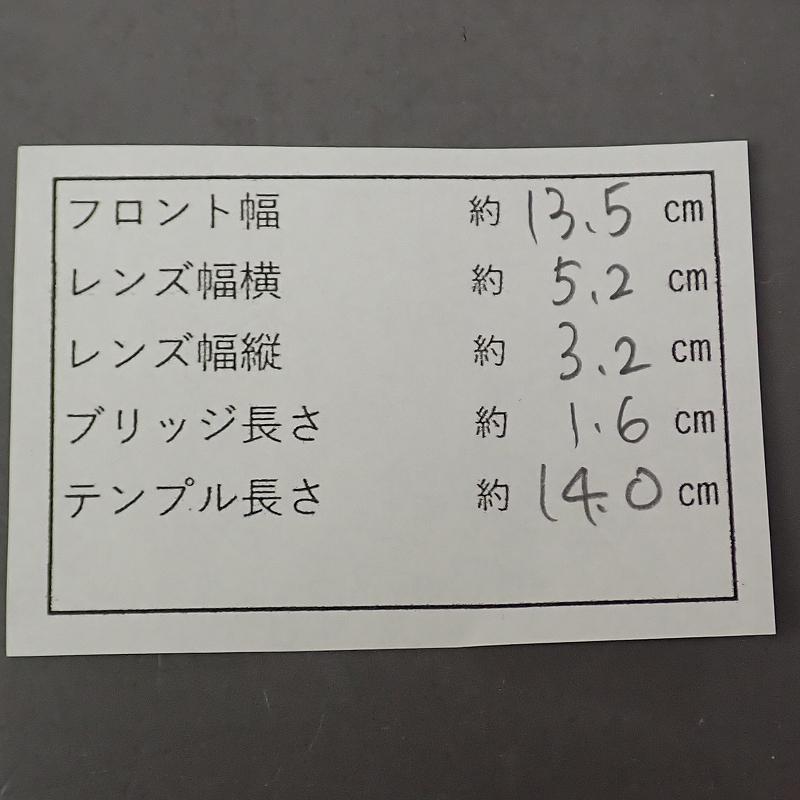 フロント幅 約 13.5 cm
レンズ幅横 約 5.2 cm
レンズ幅縦 約 3.2 cm
ブリッジ長さ 約 1.6 cm
テンプル長さ 約 14.0 cm